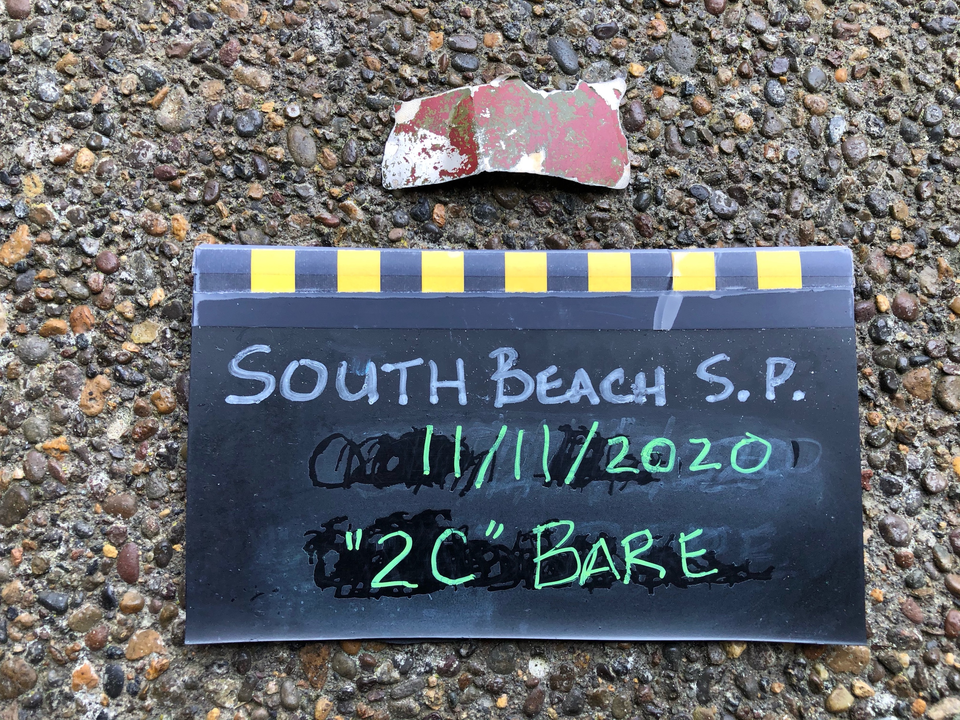 SOUTH BEACH S.P.
11/11/2020
"2C" BARE